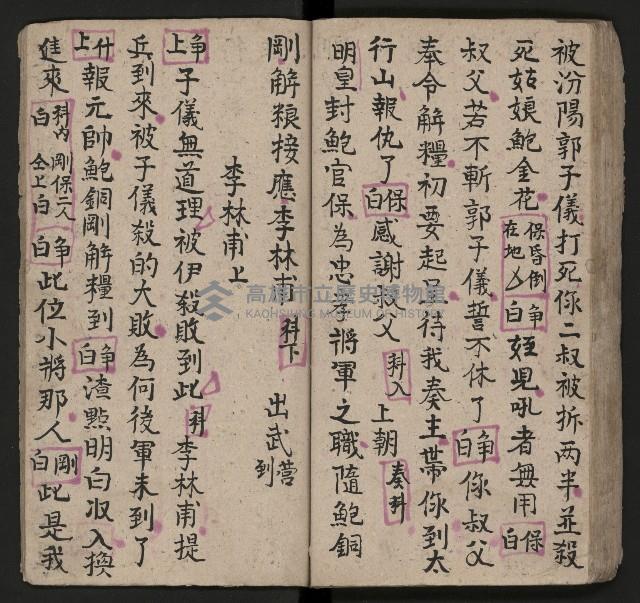 被汾陽郭子儀打死你二叔被拆两半並殺
死姑娘鮑金花 保昏倒在地 净白 姪児吼者無用 保白
叔父若不斬郭子儀誓不休了 净白 你叔父
奉令解糧初要起 待我奏主帶你到太
行山報仇了 保白 感謝叔父 科入 上朝 奏科
明皇封鮑官保為忠孝將軍之職隨鮑銅
剛解粮接應李林甫 科下 出武营到
李林甫上
净上 子儀無道理被伊殺敗到此 科 李林甫提
兵到來被子儀殺的大敗為何後軍未到了
什上 報元帥鮑銅剛解糧到 净白 渣點明白収入換
進來 科内白 剛保二人仝上白 净白 此位小將那人 剛白 此是我
高雄市立歷史博物館
KAOHSIUNG MUSEUM OF HISTORY